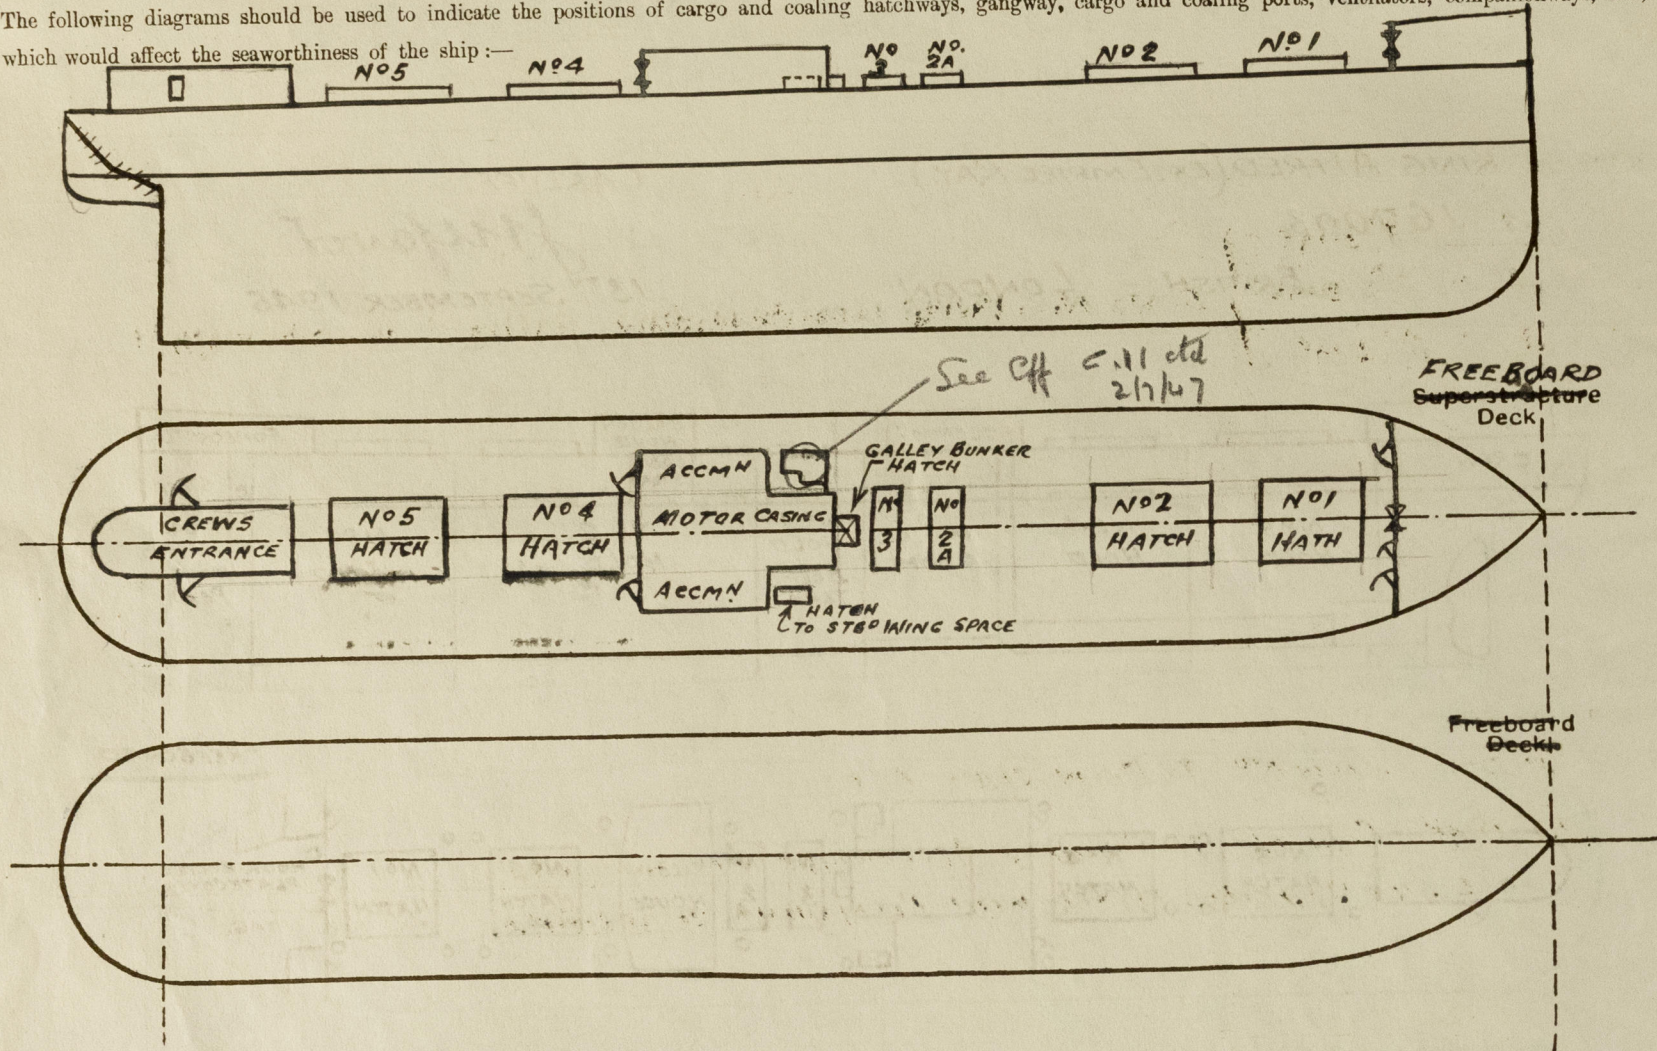 The following diagrams should be used to indicate the positions of cargo and coaling hatchways, gangway, cargo and coaling ports, ventilators,
which would affect the seaworthiness of the ship :—
Nº5
Nº4
Nº 3
Nº. 2A
Nº2
Nº1
See Cff
2/7/47
FREEBOARD
Superstructure
Deck
GALLEY BUNKER
HATCH
ACCMN
CREWS
ENTRANCE
Nº5
HATCH
Nº4
HATCH
MOTOR CASING
Nº
3
Nº
2
A
Nº2
HATCH
Nº1
HATH
ACCMN
HATCH
TO STEOWING SPACE
Freeboard
Deck.